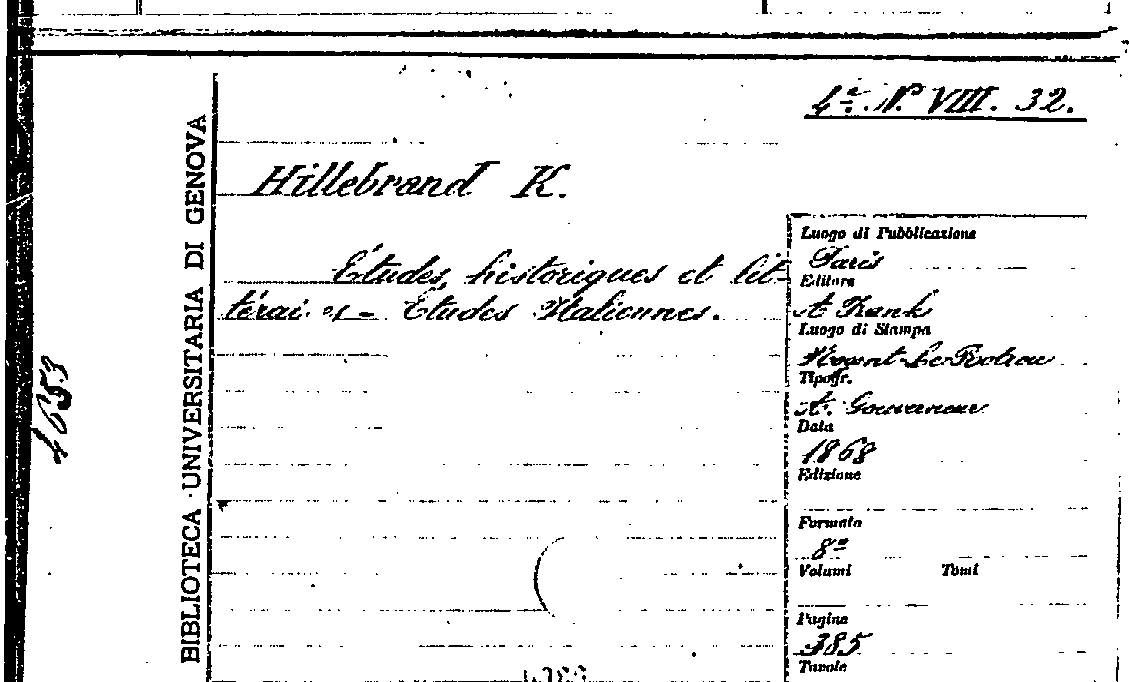 4ª. N. VIII. 32.
BIBLIOTECA UNIVERSITARIA DI GENOVA
Hillebrand K.
Études, historiques et lit-
térai es - Études Italiennes.
4653
Luogo di Pubblicazione
Paris
Editore
A Frank
Luogo di Stampa
Nogent-Le-Rotrou
Tipogr.
A. Gouverneur
Data
1868
Edizione
Formato
8º
Volumi Tomi
Pagine
385
Tavole